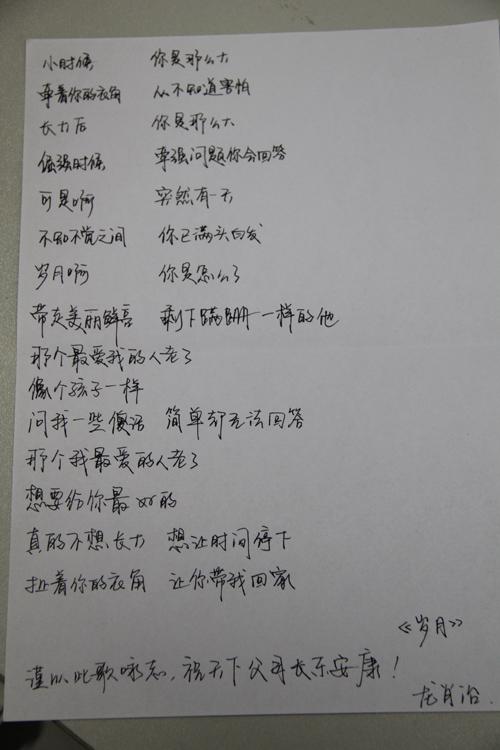 小时候 你是那么大
牵着你的衣角 从不知道害怕
长大后 你是那么大
倔强时候 牵强问题你会回答
可是啊 突然有一天
不知不觉之间 你已满头白发
岁月啊 你是怎么了
带走美丽鲜言 剩下蹒跚一样的他
那个最爱我的人老了
像个孩子一样
问我一些傻话 简单却无法回答
那个我最爱的人老了
想要给你最好的
真的不想长大 想让时间停下
扯着你的衣角 让你带我回家
《岁月》
谨以此歌咏志,祝天下父母长乐安康!
龙肖治